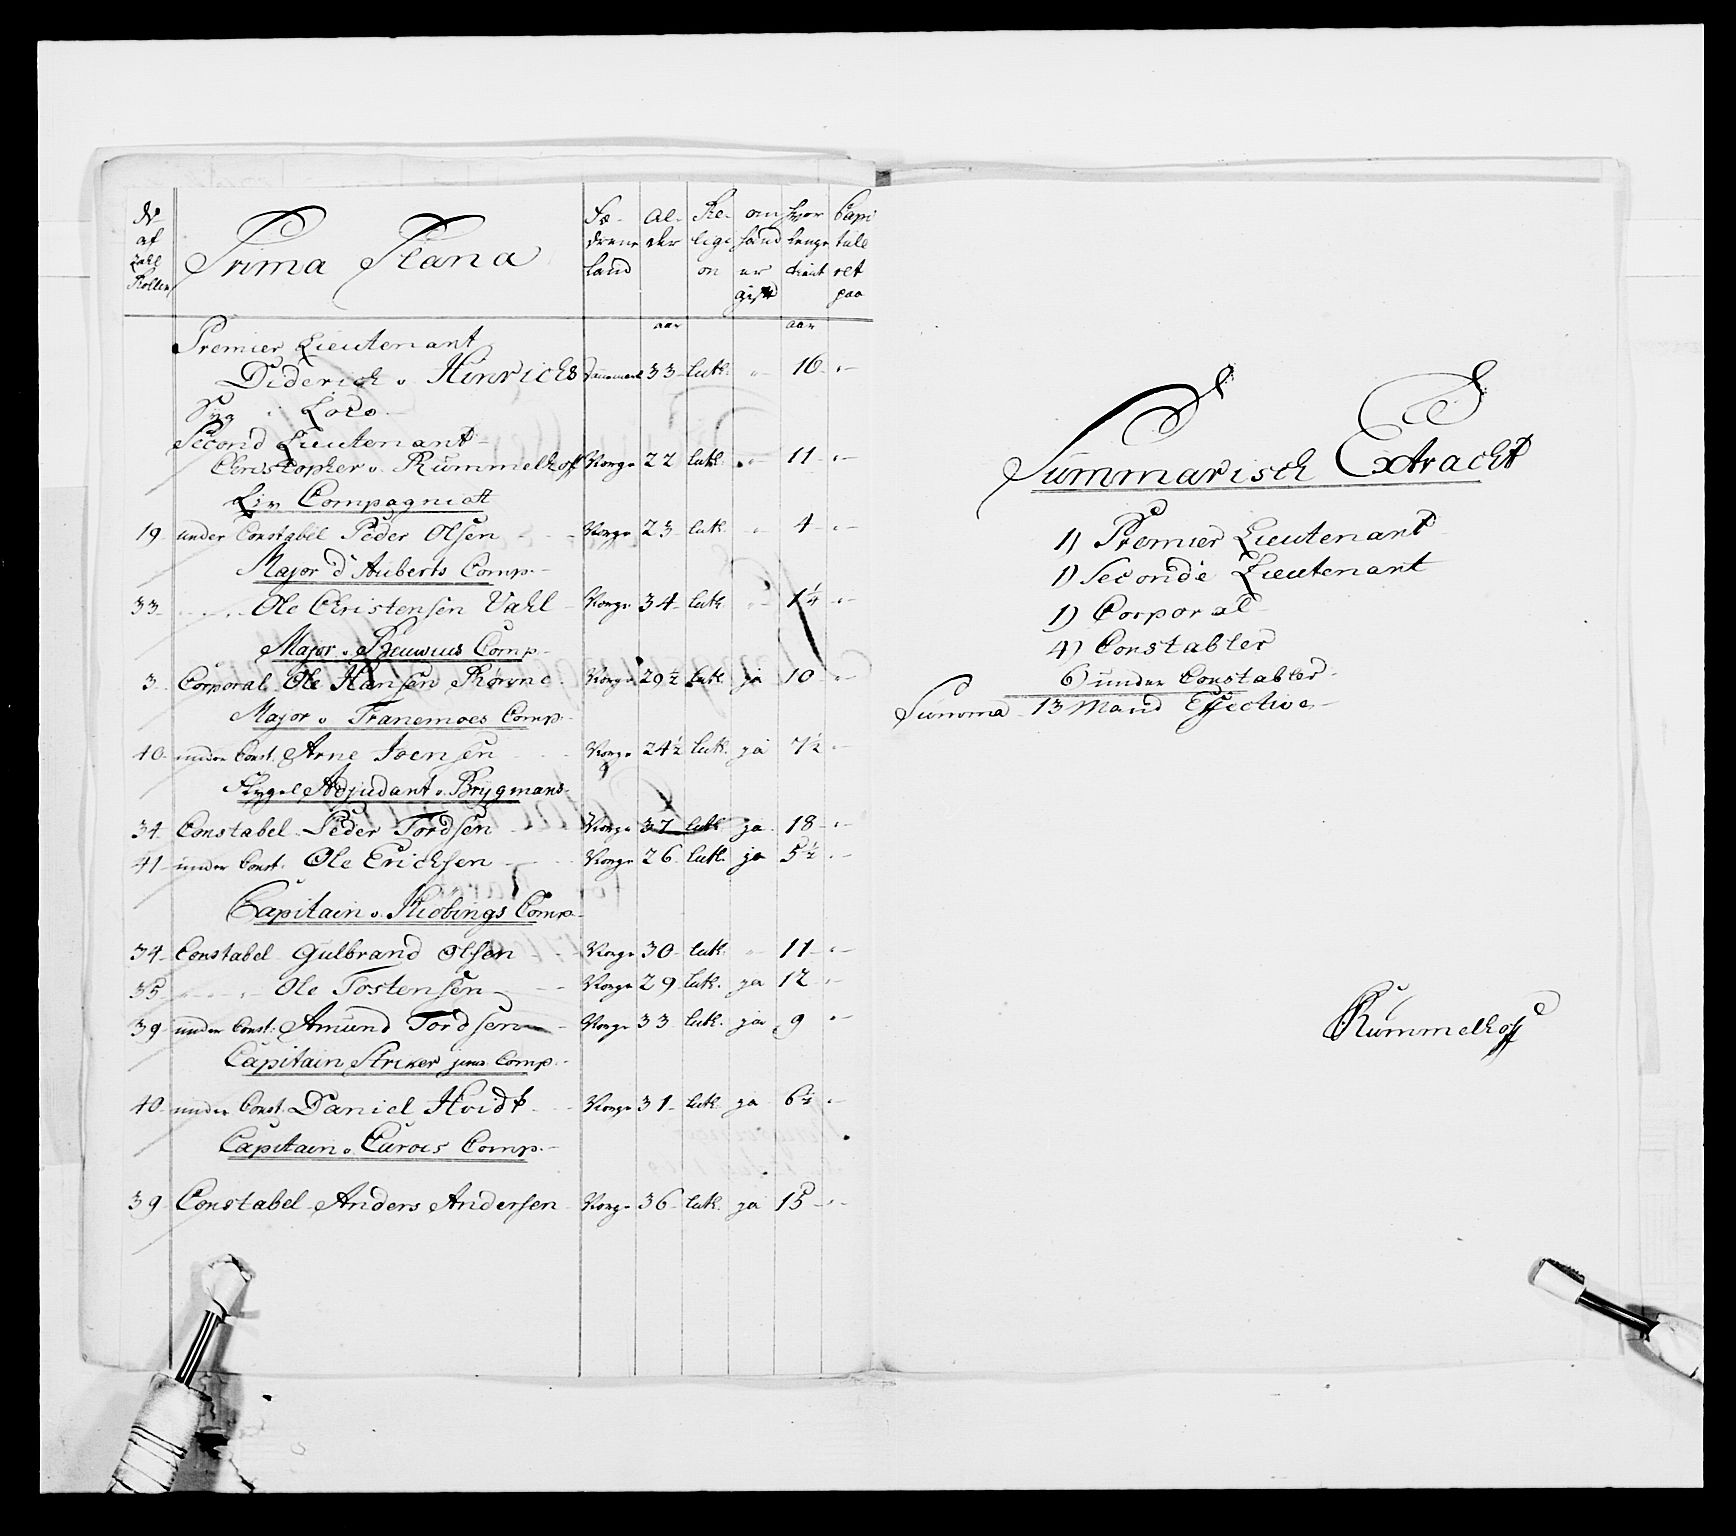 No af zahl Rollen | Prima Plana | Fæ- drene land | Al- der | Re- ligi on | om hand er gift | hvor lenge tient | Capi tule ret paa
aar aar
Premier Lieutenant
Diderich v. Hinrichs Dannemark 33 luth. " 16 "
Syg i Lodo
Second Lieutenant
Christopher v. Rummelhoff Norge 22 luth. " 11 "
Liv Compagniet
19 under Constabel Peder Olsen Norge 23 luth " 4 "
Major d'Auberts Comp.
33 " Ole Christensen Vahl Norge 34 luth " 1¼ "
Major v. Comp.
3 Corporal Ole Hansen Norge 29½ luth. ja 10 "
Major v. Tranemoes Comp.
40 under Const. Arne Joensen Norge 24½ luth. ja 7½ "
Flygel Adjudant v. Brygmans
34 Constabel Peder Tordsen Norge 37 luth ja 18 "
41 under Const. Ole Erichsen Norge 26 luth. ja 5½ "
Capitain v. Kiobings Comp.
34 Constabel Gulbrand Olsen Norge 30 luth " 11 "
35 " Ole Tostensen Norge 29 luth. ja 12 "
39 under Const: Amund Tordsen Norge 33 luth. ja 9 "
Capitain Striker junr Comp.
40 under Const. Daniel Hvidt Norge 31 luth. ja 6½ "
Capitain v. Comp.
39 Constabel Anders Andersen Norge 36 luth. ja 15 "
Summarisch Extracht
1) Premier Lieutenant
1) Seconde Lieutenant
1) Corporal
4) Constabler
6) under Constabler
Summa 13 Mand Effective
Rummelhoff